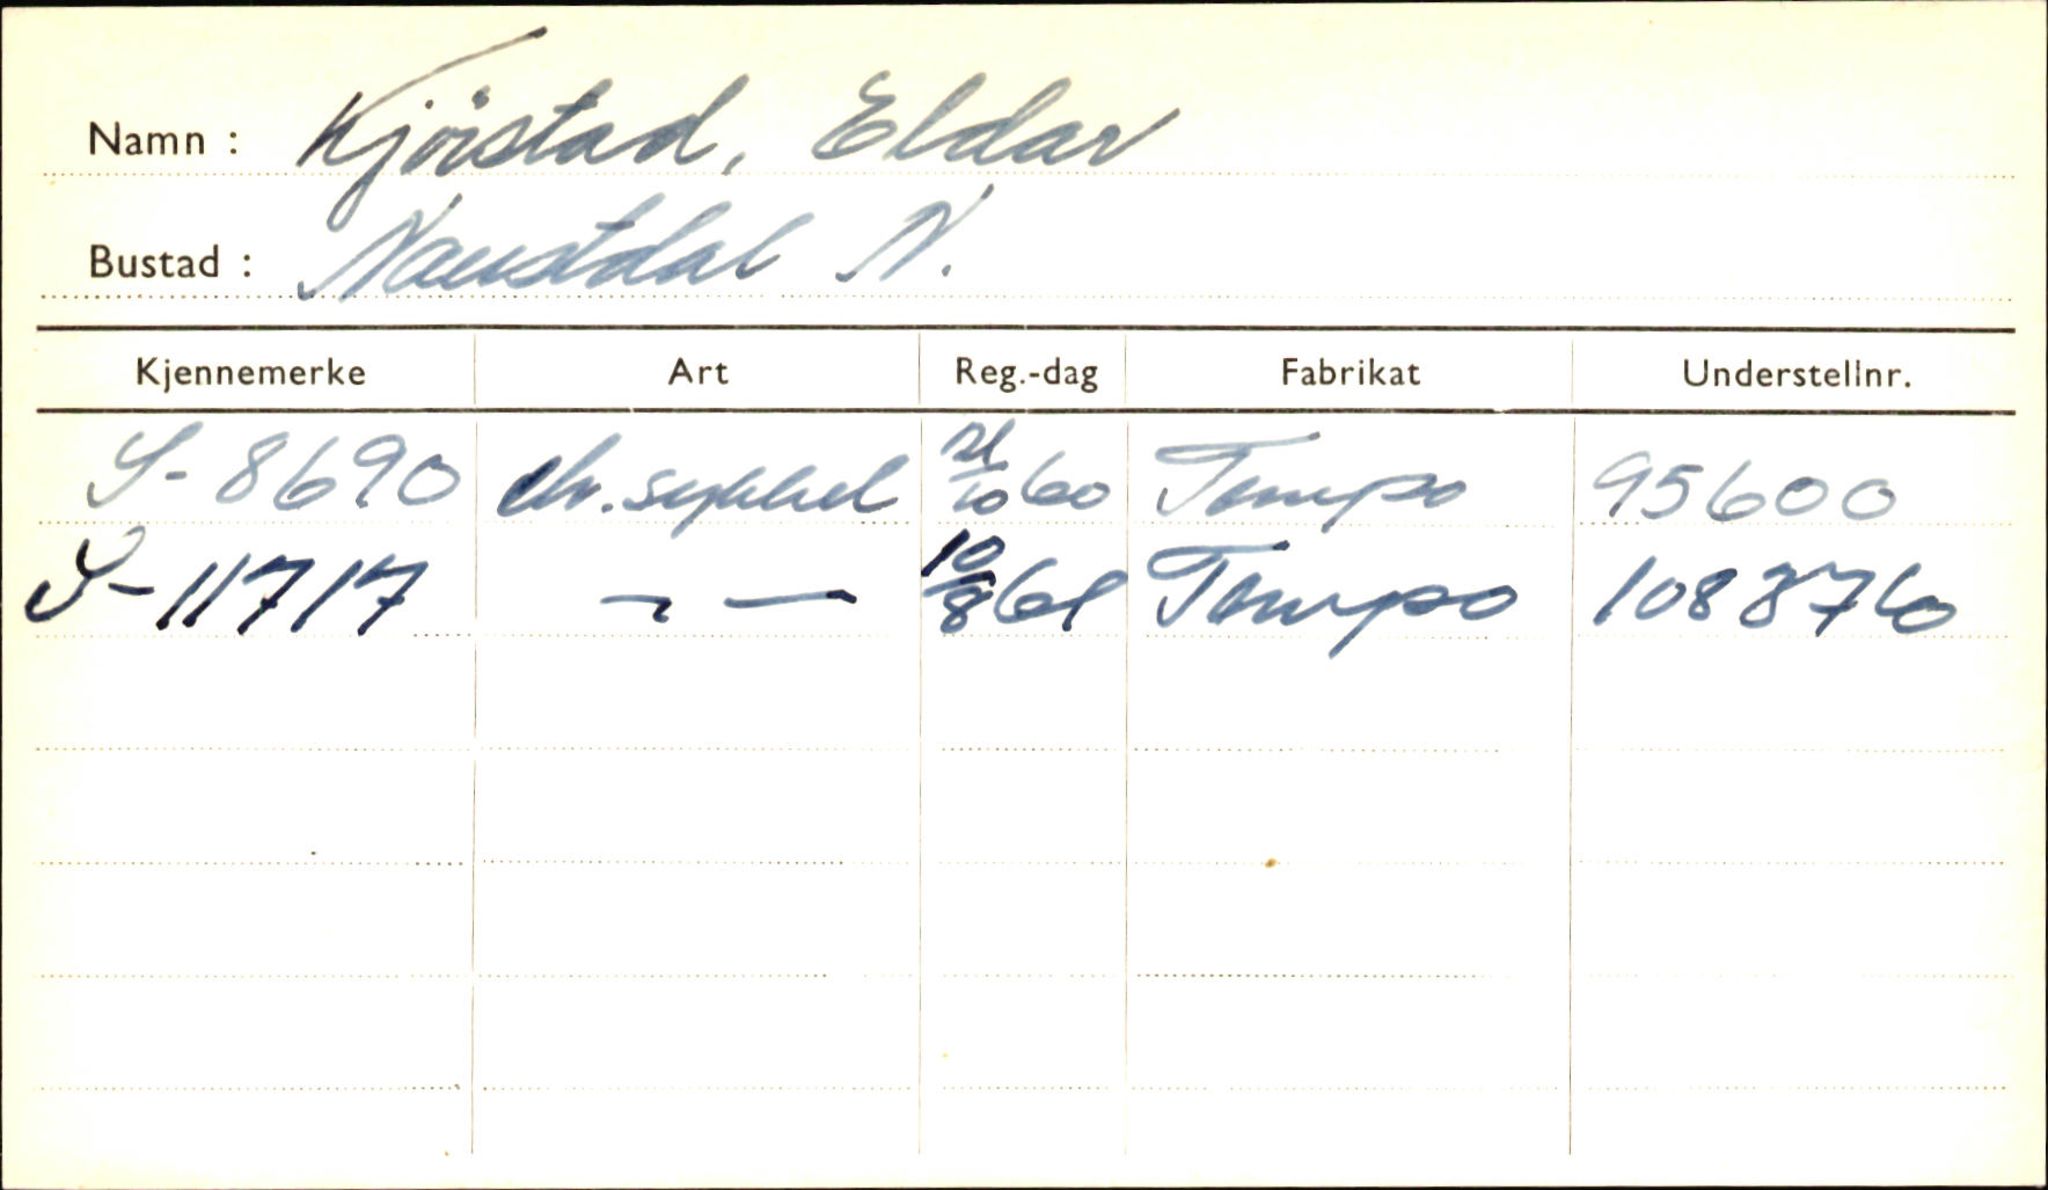 Namn : Kjörstad, Eldar
Bustad : Naustdal N.
Kjennemerke Art Reg.-dag Fabrikat Understellnr.
S-8690 lv. sykkel 21/10 60 Tempo 95600
S-11717 — " — 10/8 61 Tempo 108876